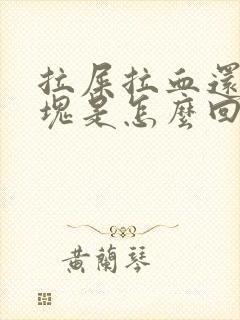 拉屎拉血還
塊是怎麼回
黃蘭琴